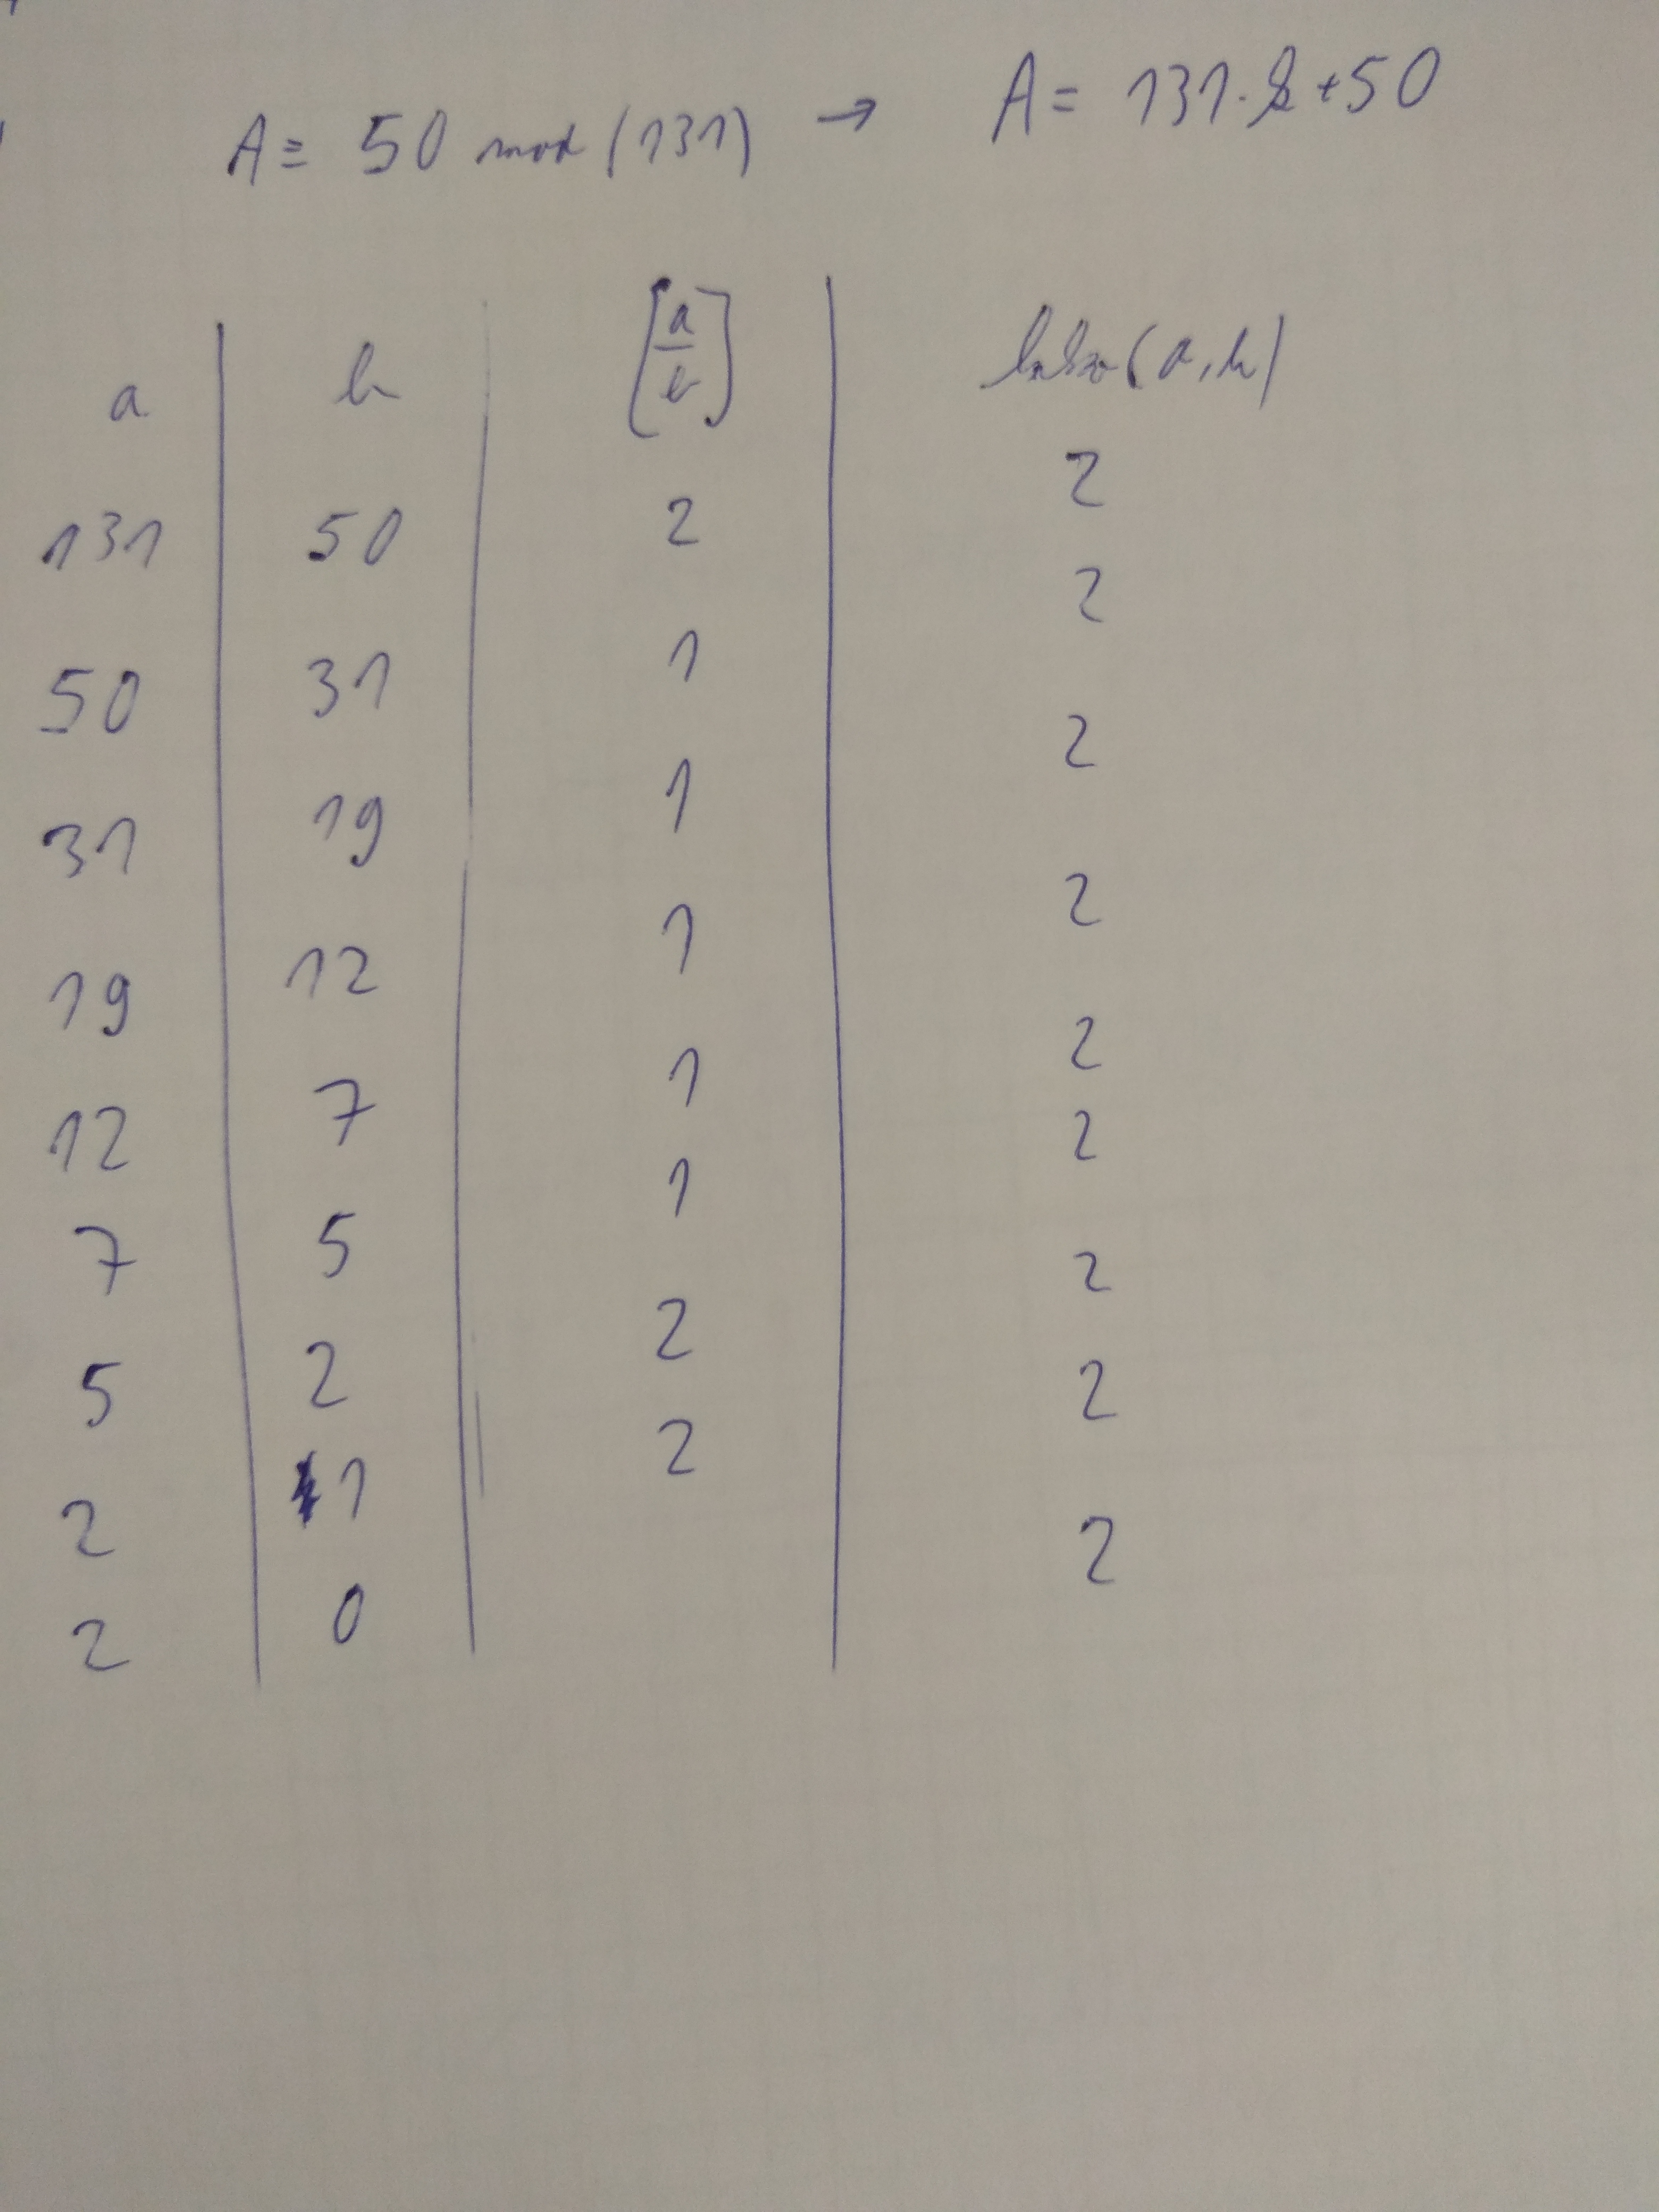 A ≡ 50 mod (131) → A = 131·k + 50
a b [a/b] lnko(a,b)
131 50 2 2
50 31 1 2
31 19 1 2
19 12 1 2
12 7 1 2
7 5 1 2
5 2 2 2
2 1 2 2
2 0 2